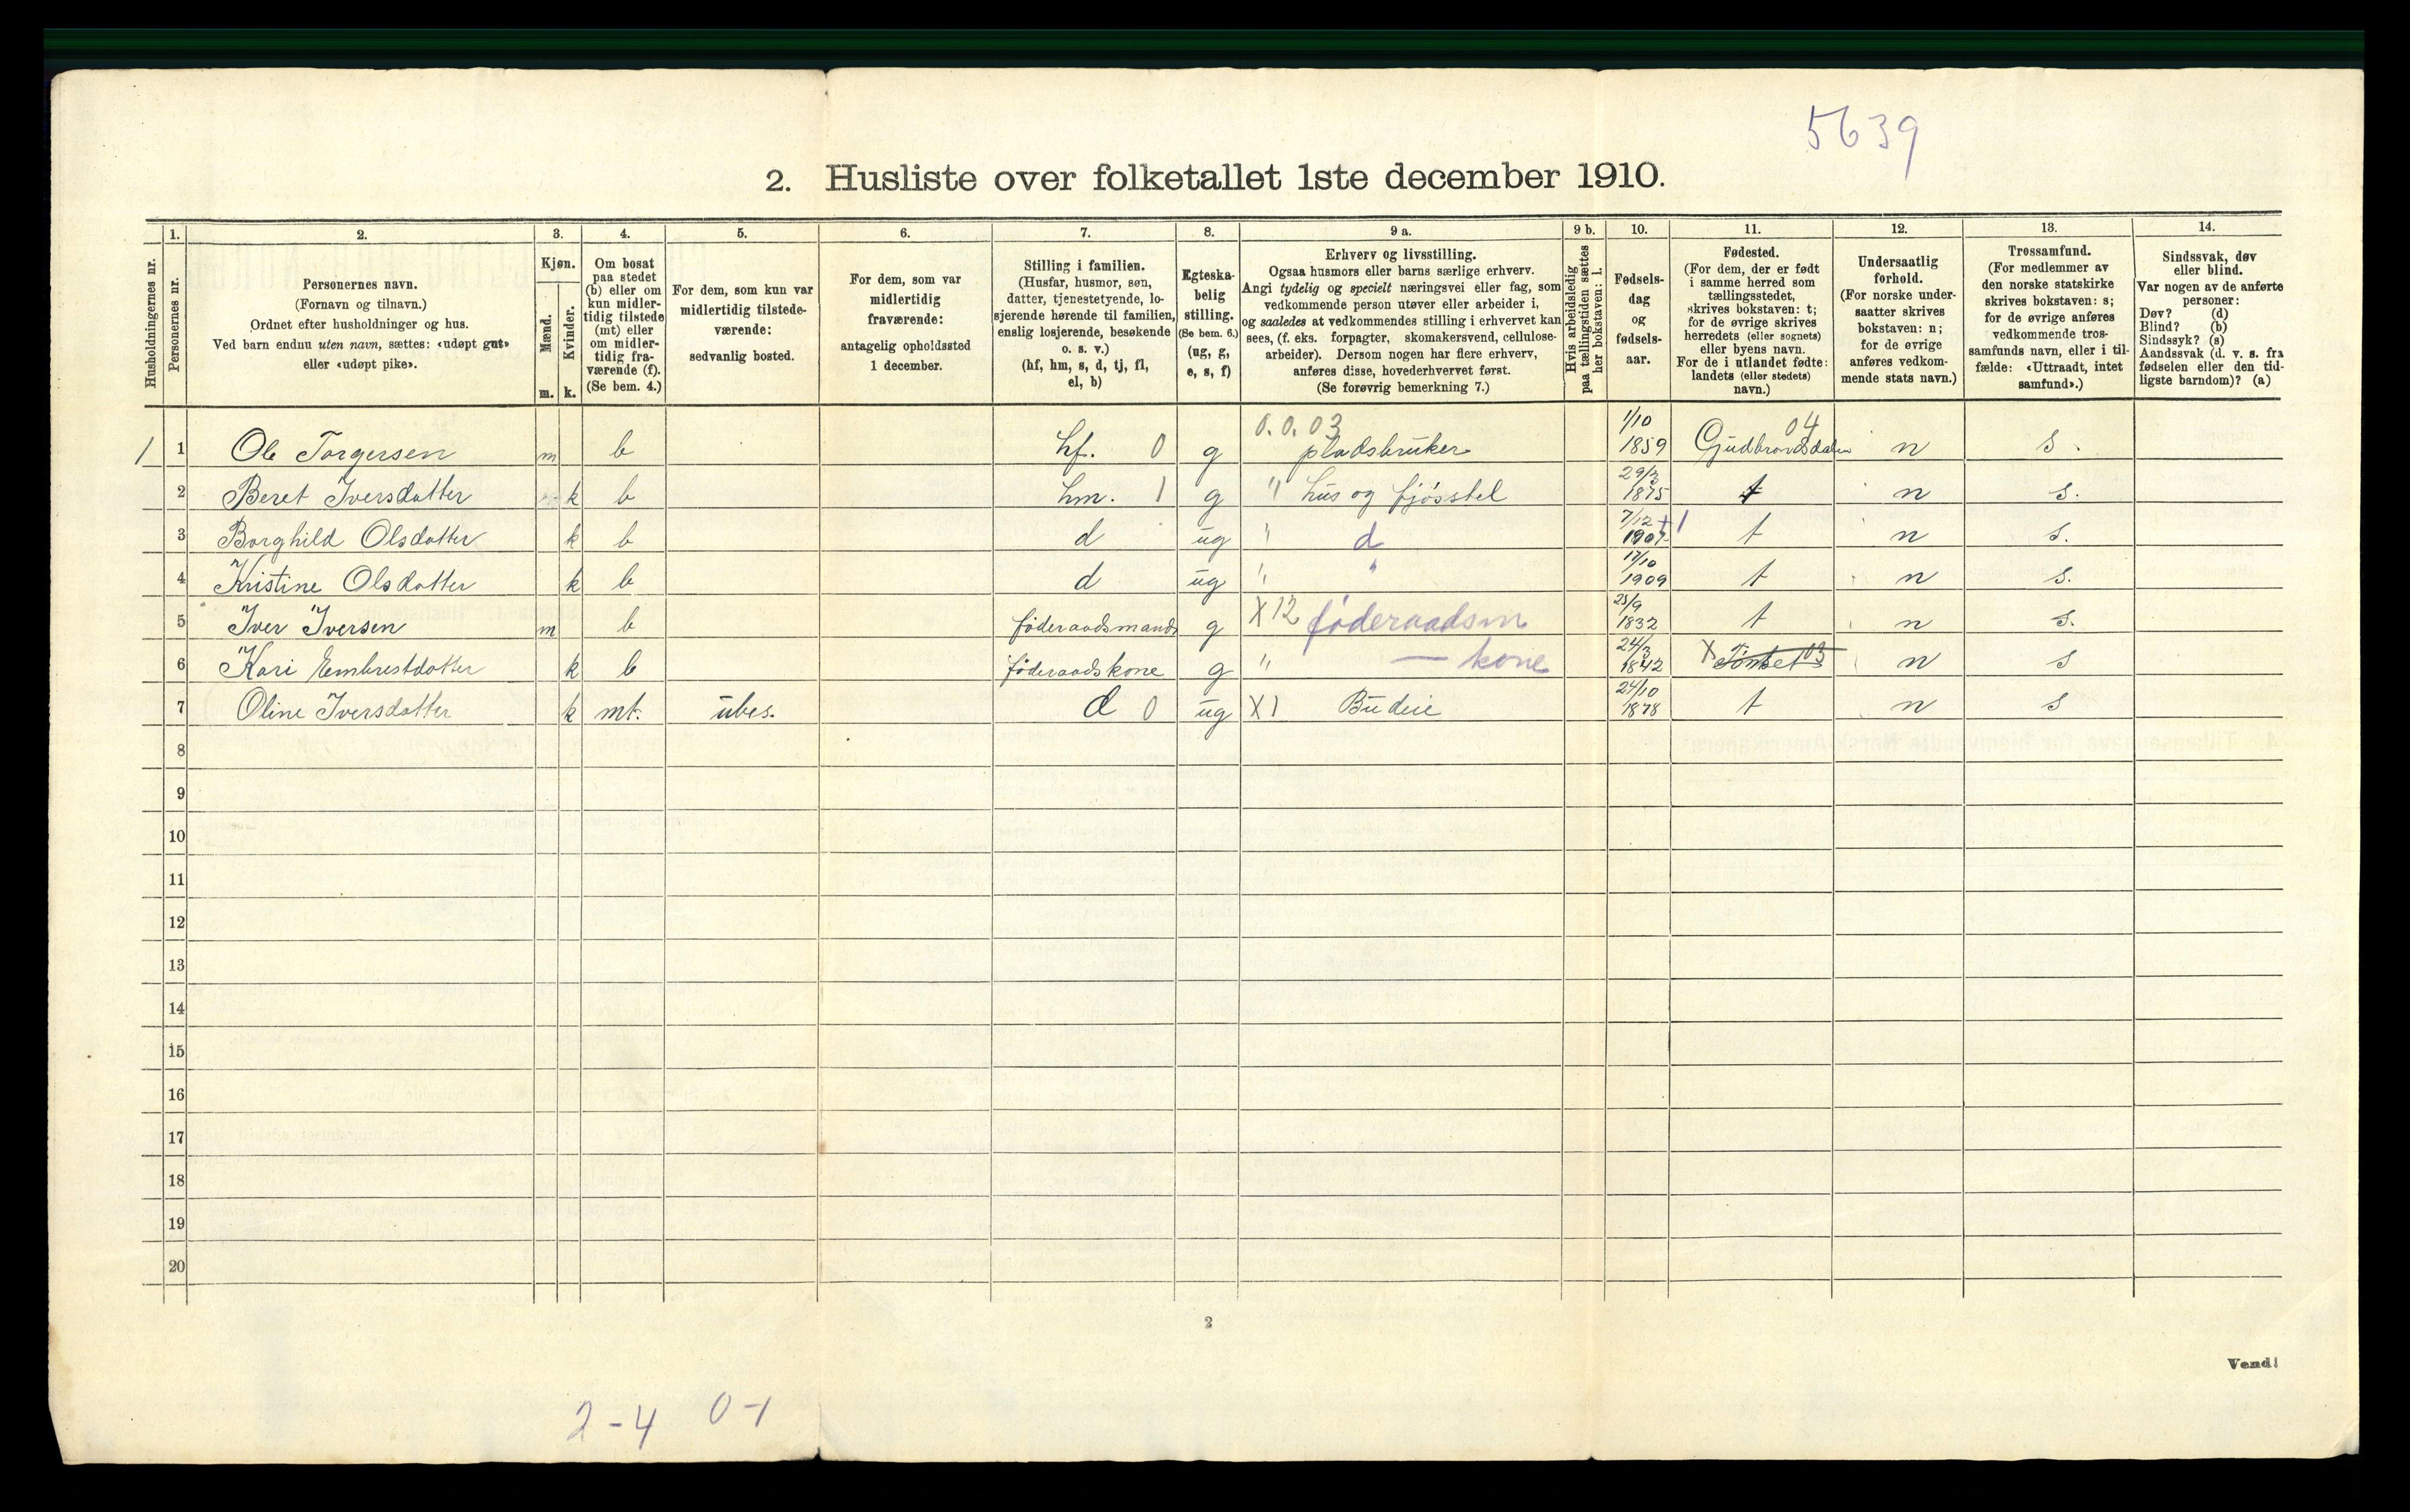 5639
2. Husliste over folketallet 1ste december 1910.
Husholdningernes nr.
1. Personernes nr.
2. Personernes navn.
(Fornavn og tilnavn.)
Ordnet efter husholdninger og hus.
Ved barn endnu uten navn, sættes: «udøpt gut»
eller «udøpt pike».
3. Kjøn.
Mænd. m.
Kvinder. k.
4. Om bosat
paa stedet
(b) eller om
kun midler-
tidig tilstede
(mt) eller
om midler-
tidig fra-
værende (f).
(Se bem. 4.)
5. For dem, som kun var
midlertidig tilstede-
værende:
sedvanlig bosted.
6. For dem, som var
midlertidig
fraværende:
antagelig opholdssted
1 december.
7. Stilling i familien.
(Husfar, husmor, søn,
datter, tjenestetyende, lo-
sjerende hørende til familien,
enslig losjerende, besøkende
o. s. v.)
(hf, hm, s, d, tj, fl,
el, b)
8. Egteska-
belig
stilling.
(Se bem. 6.)
(ug, g,
e, s, f)
9 a. Erhverv og livsstilling.
Ogsaa husmors eller barns særlige erhverv.
Angi tydelig og specielt næringsvei eller fag, som
vedkommende person utøver eller arbeider i,
og saaledes at vedkommendes stilling i erhvervet kan
sees, (f. eks. forpagter, skomakersvend, cellulose-
arbeider). Dersom nogen har flere erhverv,
anføres disse, hovederhvervet først.
(Se forøvrig bemerkning 7.)
9 b. Hvis arbeidsledig
paa tællingstiden sættes
her bokstaven: l.
10. Fødsels-
dag
og
fødsels-
aar.
11. Fødested.
(For dem, der er født
i samme herred som
tællingsstedet,
skrives bokstaven: t;
for de øvrige skrives
herredets (eller sognets)
eller byens navn.
For de i utlandet fødte:
landets (eller stedets)
navn.)
12. Undersaatlig
forhold.
(For norske under-
saatter skrives
bokstaven: n;
for de øvrige
anføres vedkom-
mende stats navn.)
13. Trossamfund.
(For medlemmer av
den norske statskirke
skrives bokstaven: s;
for de øvrige anføres
vedkommende tros-
samfunds navn, eller i til-
fælde: «Uttraadt, intet
samfund».)
14. Sindssvak, døv
eller blind.
Var nogen av de anførte
personer:
Døv? (d)
Blind? (b)
Sindssyk? (s)
Aandssvak (d. v. s. fra
fødselen eller den tid-
ligste barndom)? (a)
1 1 Ole Torgersen m b hf. 0 g 0.0.03 pladsbruker 1/10 1859 Gudbrandsdalen 04 n s.
2 Beret Iversdatter k b hm. 1 g " hus og fjøsstel 29/3 1875 t n s.
3 Borghild Olsdatter k b d ug " d 7/12 1907 +1 t n s.
4 Kristine Olsdatter k b d ug " " 17/10 1909 t n s.
5 Iver Iversen m b føderaadsmand g X12 føderaadsm 25/9 1832 t n s.
6 Kari Embretsdatter k b føderaadskone g " — kone 24/3 1842 X Tønset 03 n s
7 Oline Iversdatter k mt. ubes. d 0 ug X1 Budeie 24/10 1878 t n s
8
9
10
11
12
13
14
15
16
17
18
19
20
2
Vend!
2-4 0-1